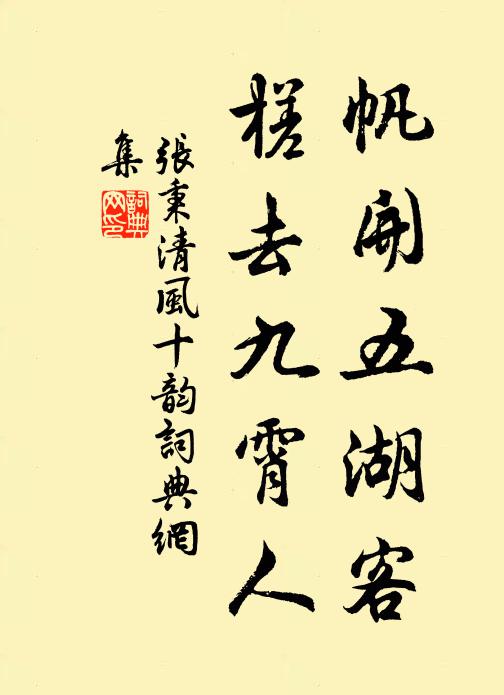 帆開五湖客
槎去九霄人
張秉清風十韵詞典網
集
詞典網印